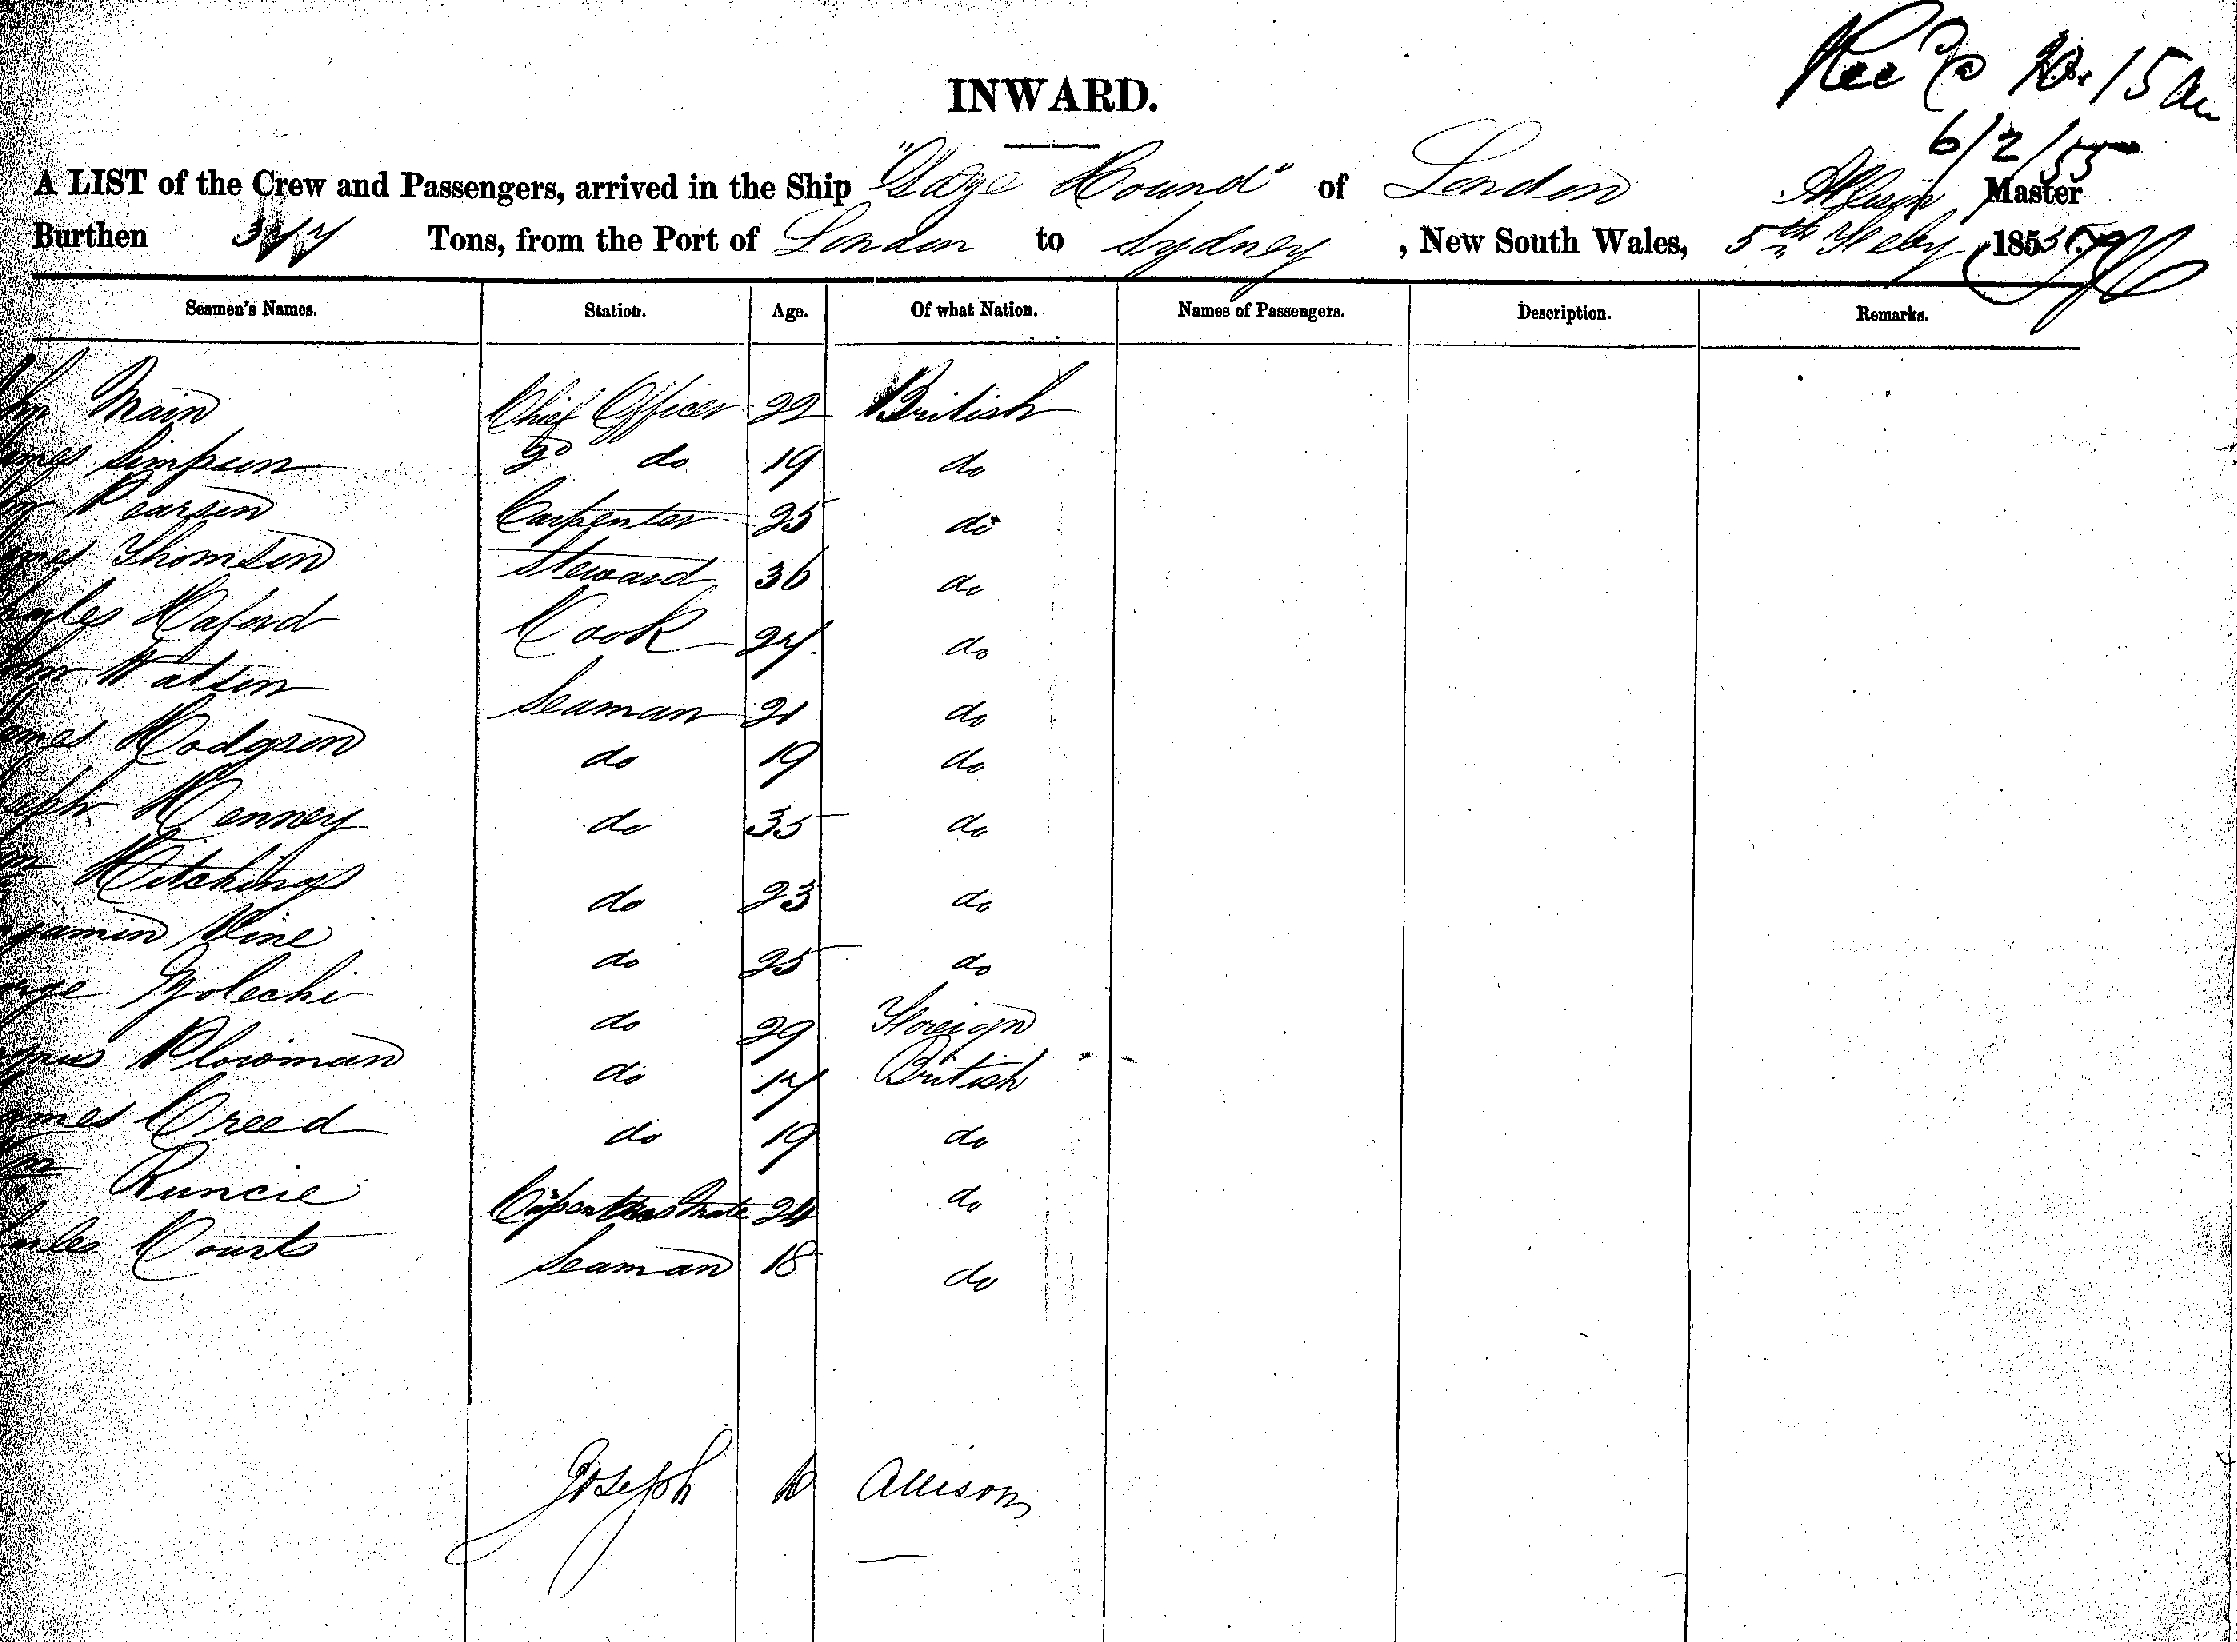 Rec'd 10.15 am
6/2/55
INWARD.
A LIST of the Crew and Passengers, arrived in the Ship "Gaze Hound" of London Allison Master
Burthen Tons, from the Port of London to Sydney, New South Wales, 5th Feby 1855
Seamen's Names. Station. Age. Of what Nation. Names of Passengers. Description. Remarks.
Main Chief Officer 22 British
Simpson 2d do 19 do
Pearson Carpenter 25 do
Thomson Steward 36 do
Haford Cook 27 do
Watson Seaman 21 do
Hodgson do 19 do
Kenney do 35 do
Hitchings do 23 do
jamin Vine do 25 do
do 29 Foreign
Plowman do 17 British
ames Creed do 19 do
Runcie Carpenters Mate 24 do
arles Courts Seaman 18 do
Joseph Allison